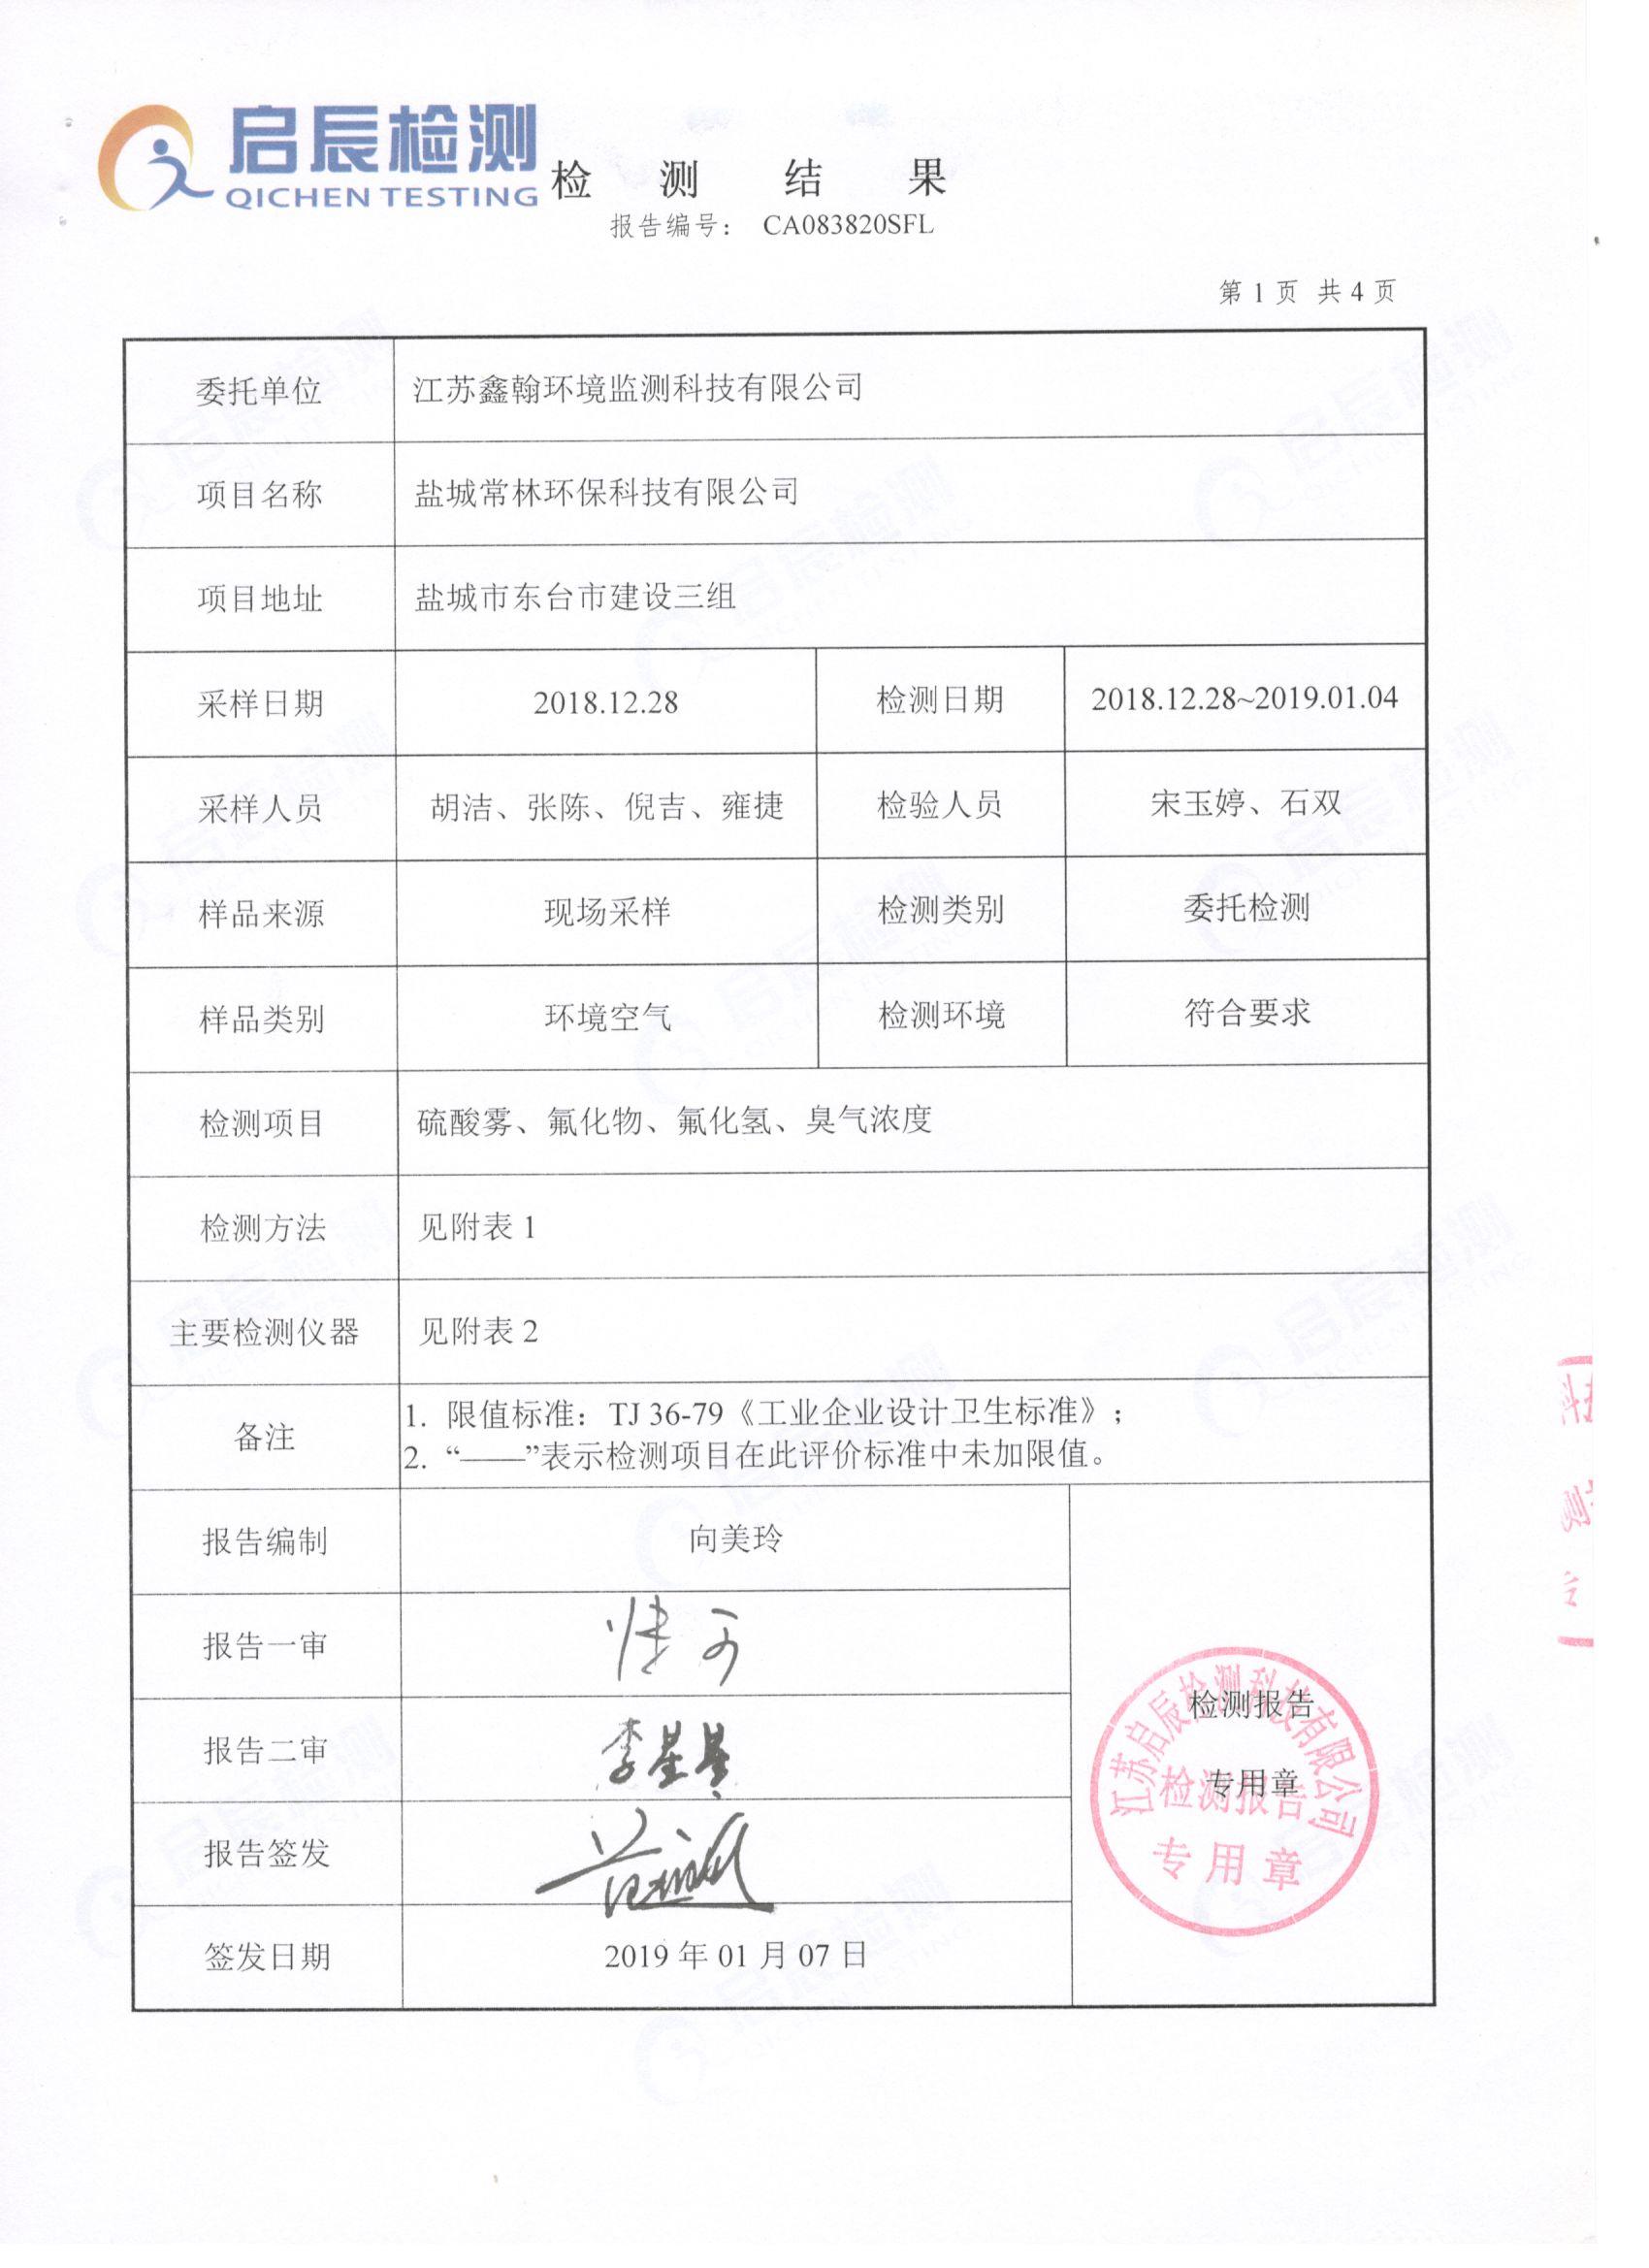 启辰检测
QICHEN TESTING
检 测 结 果
报告编号： CA083820SFL
第 1 页 共 4 页
委托单位 江苏鑫翰环境监测科技有限公司
项目名称 盐城常林环保科技有限公司
项目地址 盐城市东台市建设三组
采样日期 2018.12.28 检测日期 2018.12.28~2019.01.04
采样人员 胡洁、张陈、倪吉、雍捷 检验人员 宋玉婷、石双
样品来源 现场采样 检测类别 委托检测
样品类别 环境空气 检测环境 符合要求
检测项目 硫酸雾、氟化物、氟化氢、臭气浓度
检测方法 见附表 1
主要检测仪器 见附表 2
备注 1. 限值标准：TJ 36-79《工业企业设计卫生标准》；
2. “——”表示检测项目在此评价标准中未加限值。
报告编制 向美玲
报告一审
报告二审 李星星
报告签发
签发日期 2019 年 01 月 07 日
检测报告
专用章
江苏启辰检测科技有限公司
检测报告
专用章